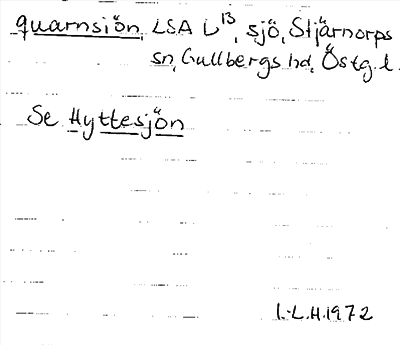 quarnsiön, LSA L¹³, sjö, Stjärnorps
sn, Gullbergs hd, Östg. l.
Se Hyttesjön
I.-L.H.1972